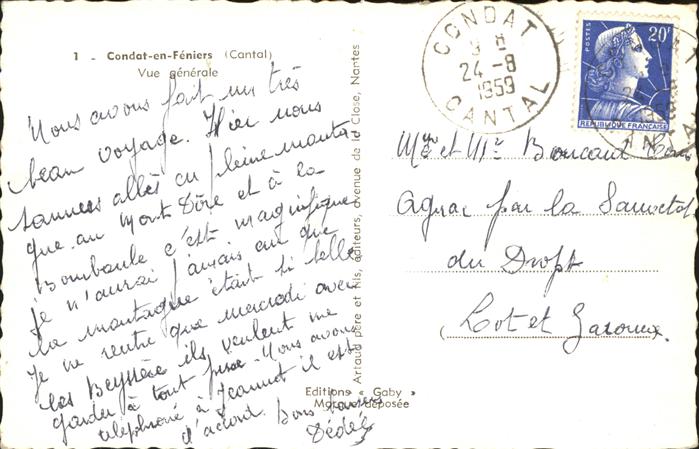 1 - Condat-en-Féniers (Cantal)
Vue générale
Nous avons fait un très
beau voyage. Hier nous
sommes allés en pleine monta
gne au Mont Dore et à la
Bourboule c'est magnifique
je n'aurai jamais cru que
la montagne était si belle
Je ne rentre que mercredi avec
les Beyssère ils veulent me
garder à tout prix. Nous avons
téléphoné à Jeannot il est
d'accord. Bons baisers
Dédée
Artaud père et fils, éditeurs, avenue de la Close, Nantes
Editions « Gaby »
Marque déposée
CONDAT
24-8
1959
CANTAL
POSTES
20F
REPUBLIQUE FRANÇAISE
Mme et Mr Boucaut
Agnac par la Sauvetat
du Dropt
Lot et Garonne